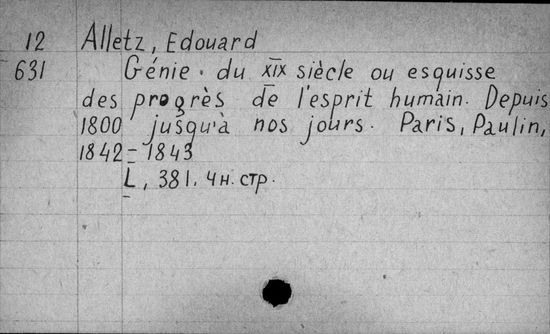 12 Alletz, Edouard
631 Génie du XIX siècle ou esquisse
des progrès de l'esprit humain. Depuis
1800 jusqu'à nos jours. Paris, Paulin,
1842 = 1843
L, 381. 4 н. стр.